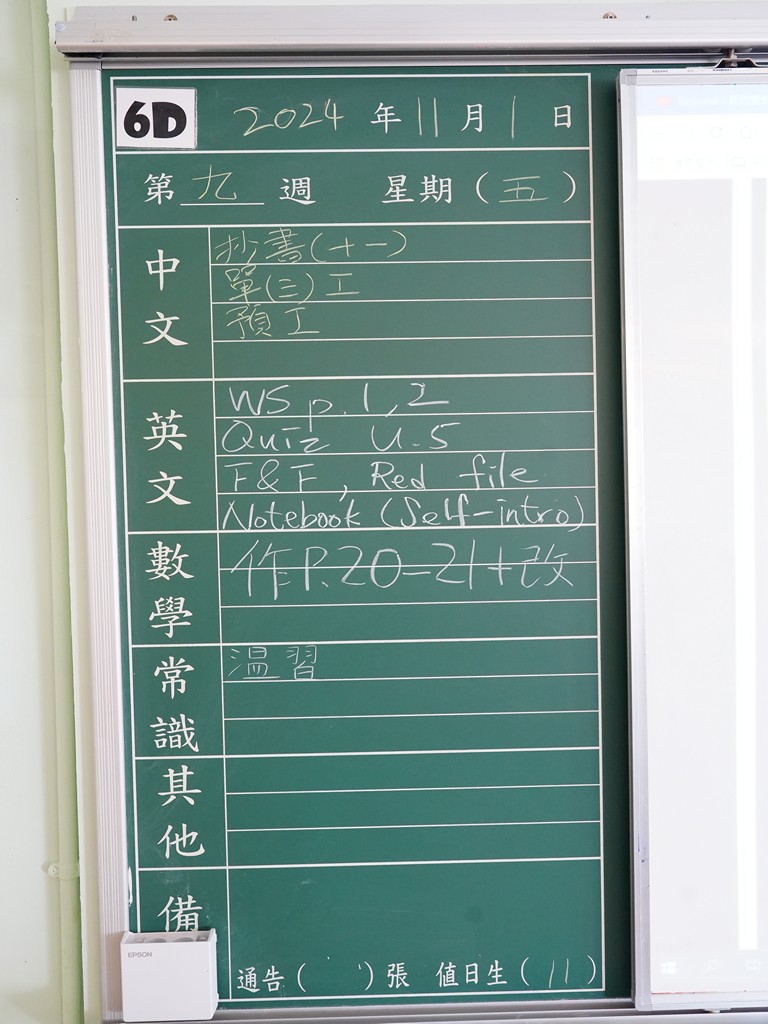 6D 2024 年 11 月 1 日
第 九 週 星期 ( 五 )
中文
抄書(十一)
單(三)工
預工
英文
WS p.1,2
Quiz U.5
F&F, Red file
Notebook (Self-intro)
數學
作P.20-21+改
常識
溫習
其他
備
EPSON
通告( )張 值日生(11)